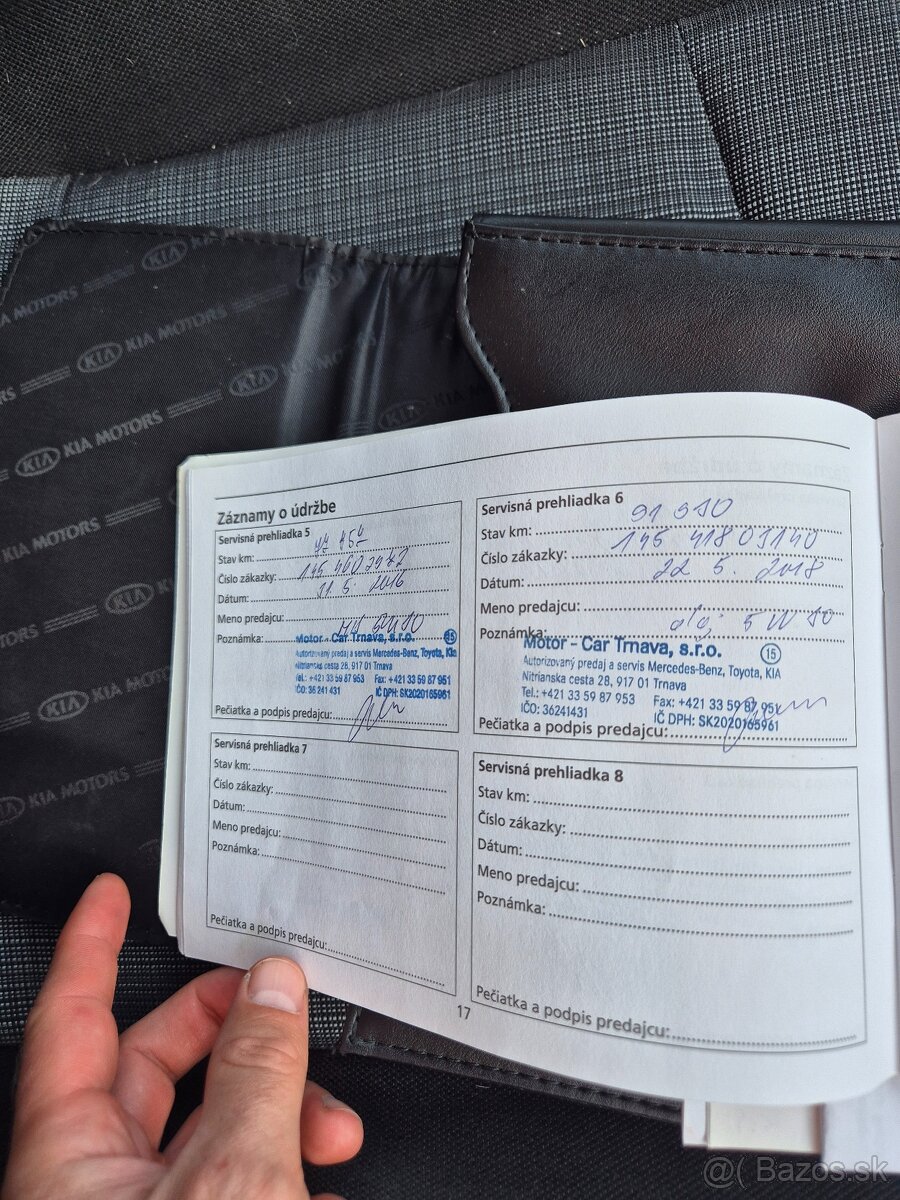 KIA MOTORS
KIA MOTORS
KIA MOTORS
KIA MOTORS
KIA MOTORS
KIA MOTORS
Záznamy o údržbe
Servisná prehliadka 5
Stav km:
Číslo zákazky:
Dátum: 31. 5. 2016
Meno predajcu:
Poznámka:
Motor - Car Trnava, s.r.o. 15
Autorizovaný predaj a servis Mercedes-Benz, Toyota, KIA
Nitrianska cesta 28, 917 01 Trnava
Tel.: +421 33 59 87 953 Fax: +421 33 59 87 951
IČO: 36 241 431 IČ DPH: SK2020165961
Pečiatka a podpis predajcu:
Servisná prehliadka 6
Stav km: 91 910
Číslo zákazky: 145 41803140
Dátum: 22 5. 2018
Meno predajcu:
Poznámka: olej 5W30
Motor - Car Trnava, s.r.o. 15
Autorizovaný predaj a servis Mercedes-Benz, Toyota, KIA
Nitrianska cesta 28, 917 01 Trnava
Tel.: +421 33 59 87 953 Fax: +421 33 59 87 951
IČO: 36241431 IČ DPH: SK2020165961
Pečiatka a podpis predajcu:
Servisná prehliadka 7
Stav km:
Číslo zákazky:
Dátum:
Meno predajcu:
Poznámka:
Pečiatka a podpis predajcu:
Servisná prehliadka 8
Stav km:
Číslo zákazky:
Dátum:
Meno predajcu:
Poznámka:
Pečiatka a podpis predajcu:
17
@( Bazos.sk